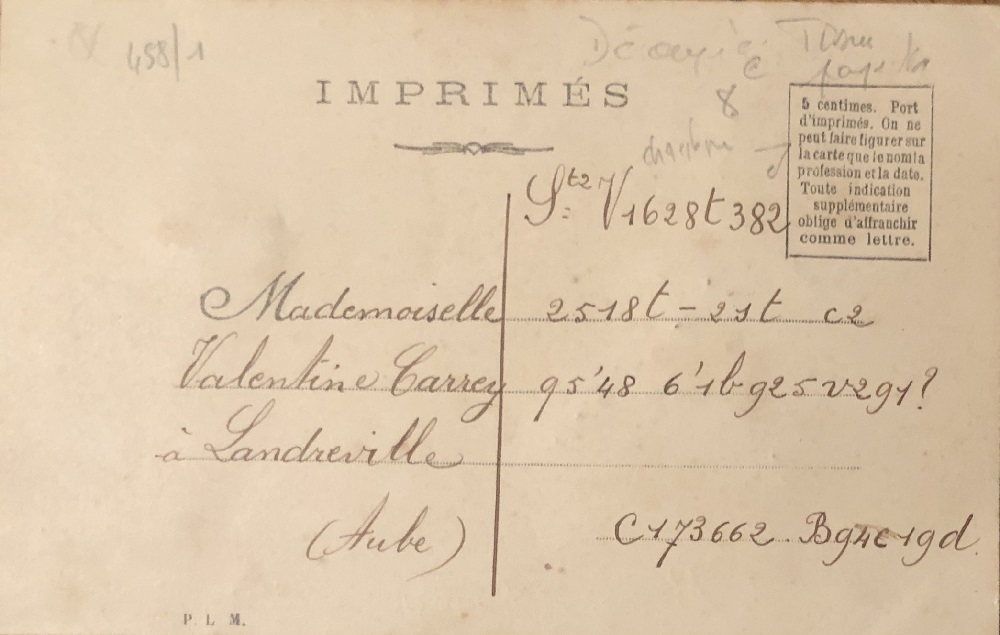 458/1
IMPRIMÉS
5 centimes. Port
d'imprimés. On ne
peut faire figurer sur
la carte que le nom la
profession et la date.
Toute indication
supplémentaire
oblige d'affranchir
comme lettre.
Ste V1628t382
Mademoiselle
Valentine Carrey
à Landreville
(Aube)
2518t - 21t c2
95'48 6'1bg25v2g1?
C173662. Bg4c1gd
P. L. M.